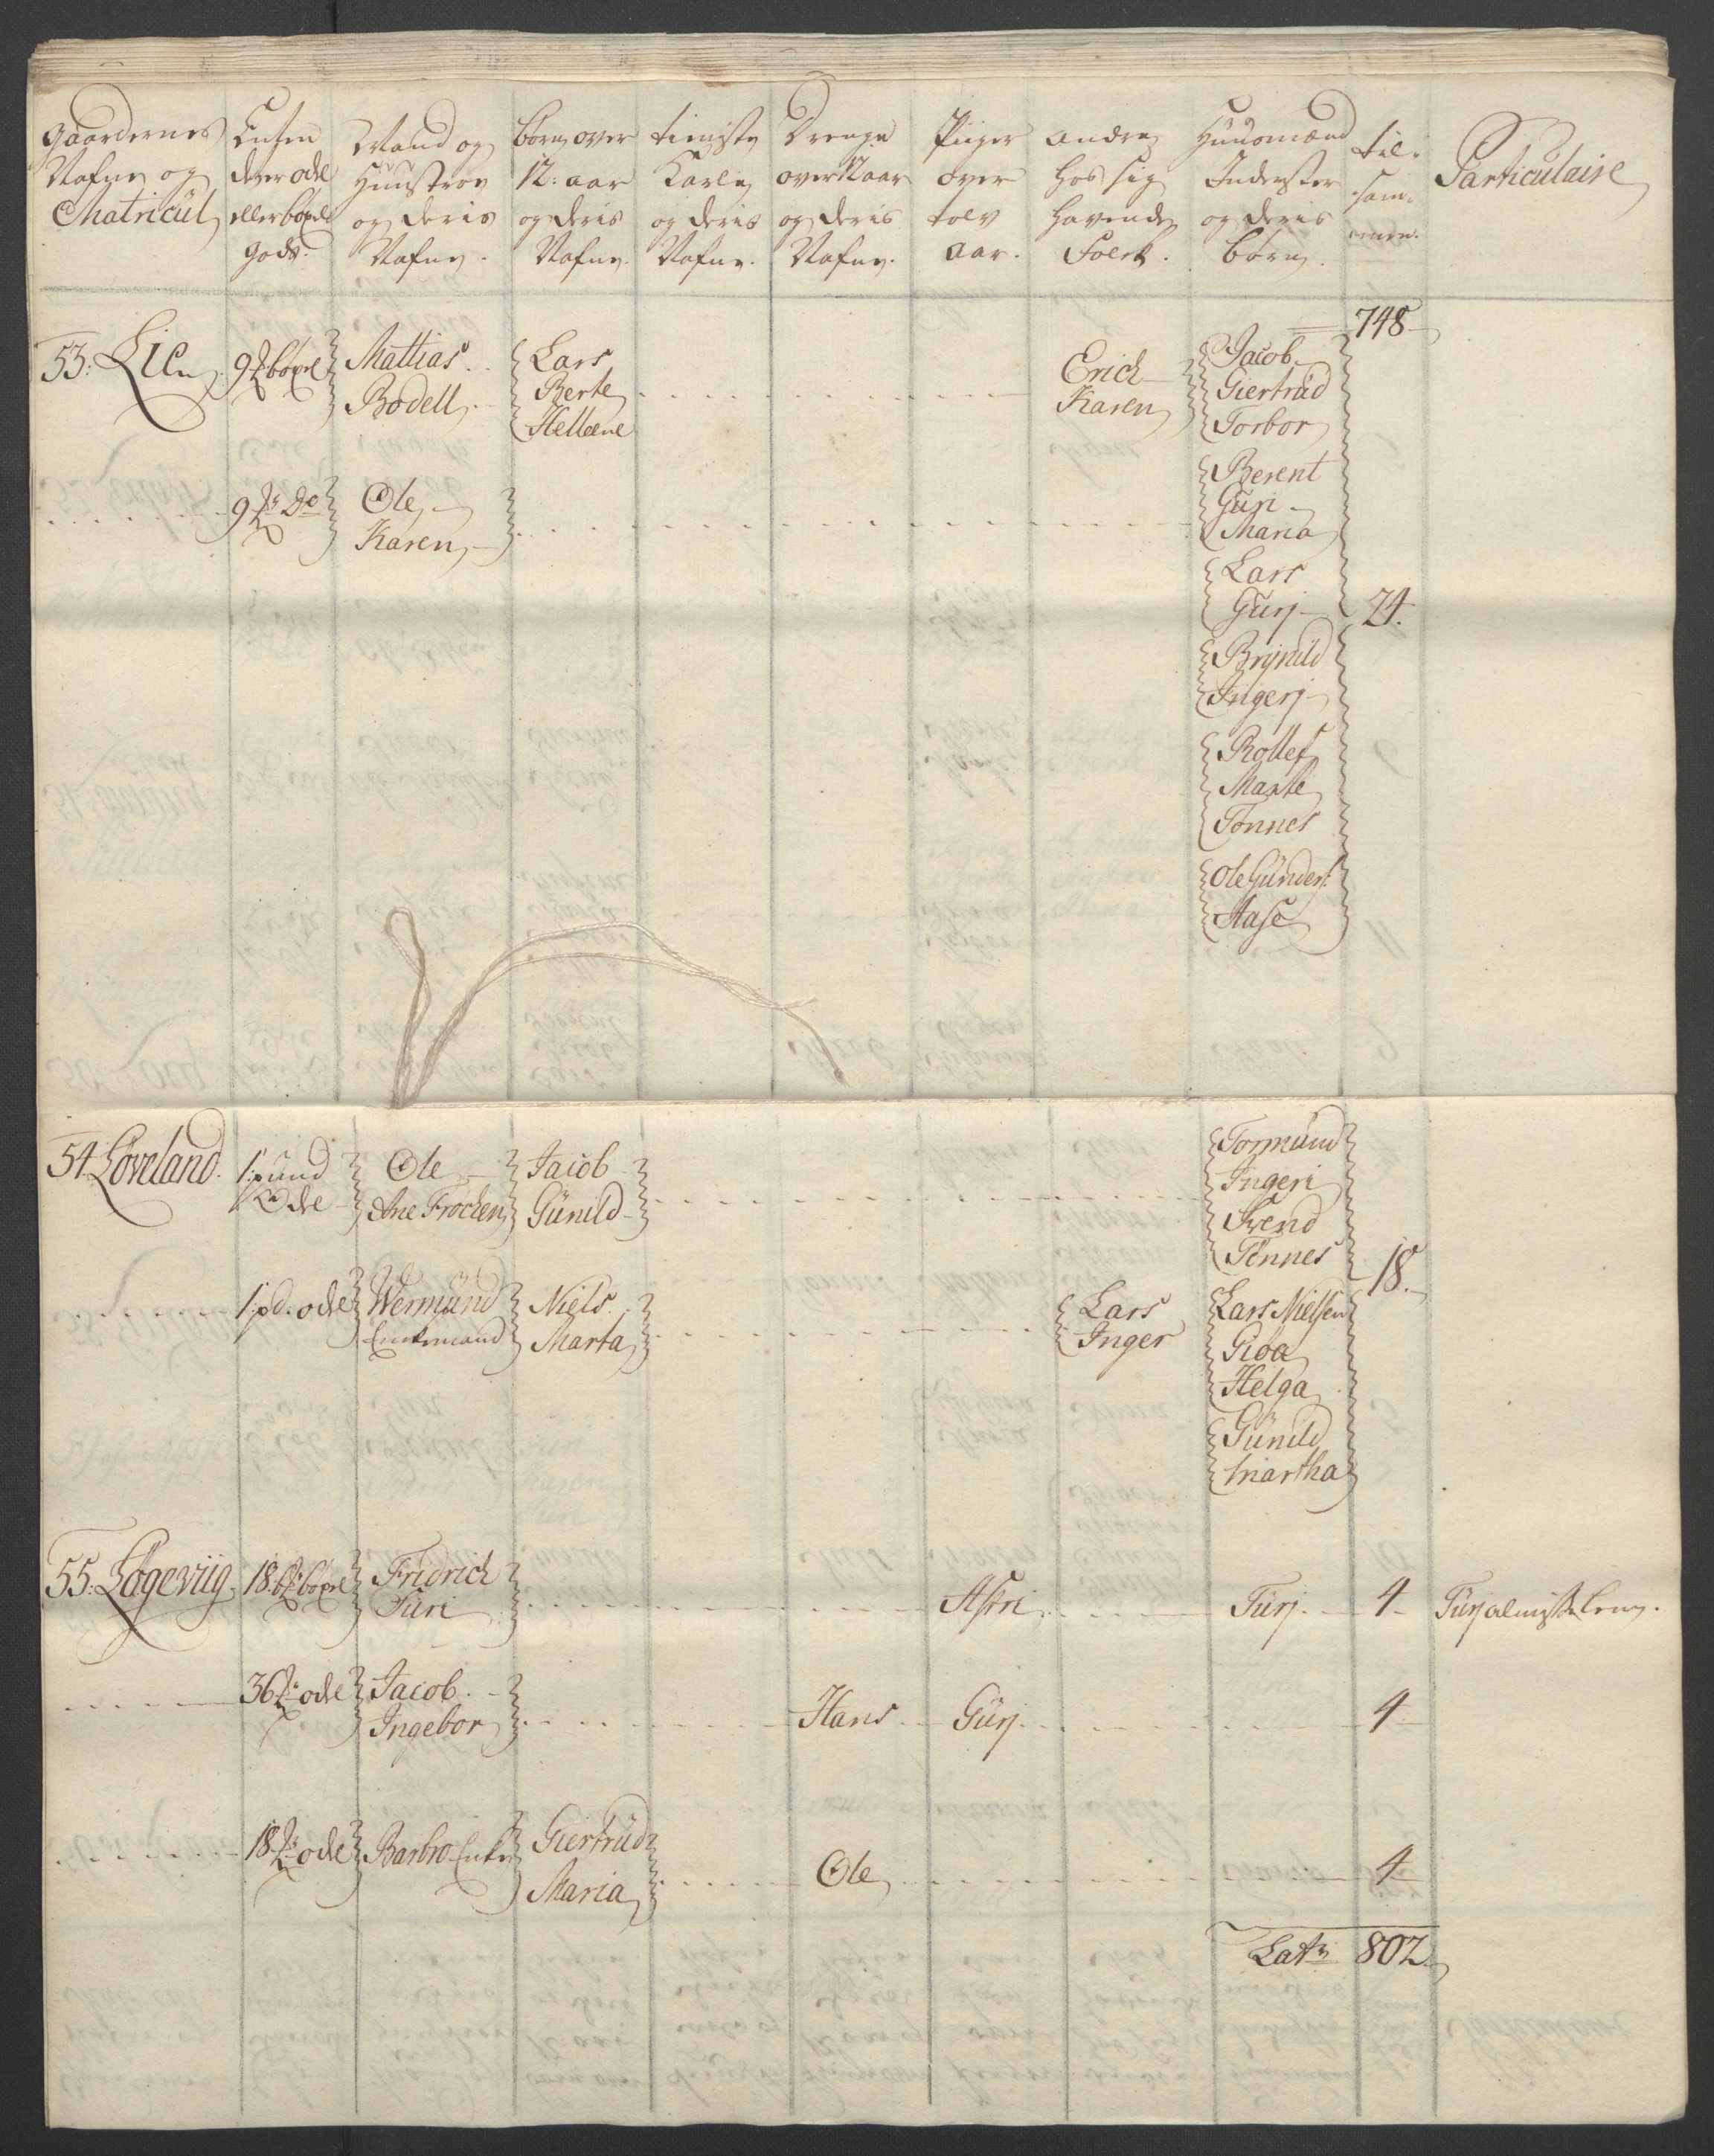 Gaardernes
Nafne og
Matricul
Enten
de er odel
eller boxel
gods.
Mand og
Huustroe
og deris
Nafne.
børn over
12: aar
og deris
Nafne.
tieniste
Karle
og deris
Nafne.
Drenge
over 12 aar
og deris
Nafne.
Piiger
over
tolv
aar.
andre
hos sig
havende
Folck.
Huusmænd
Inderster
og deris
børn.
til-
sam-
men.
Particulaire
748
53: Lien
9 boxel
Mattias
Bodell
Lars
Berte
Helleene
Erich
Karen
Jacob
Giertrüd
Torbor
9 Do
Ole
Karen
Berent
Güri
Maria
Lars
Gürj
24.
Brÿnild
Ingerj
Rollef
Marte
Tønnes
Ole Günders:
Aase
54. Løveland.
1: pund
Odel
Ole
Ane Frochen
Jacob
Günild
Tormünd
Ingeri
Svend
Tønnes
18.
1: pd. odel
Wermünd
Enkemand
Niels
Marta
Lars
Inger
Lars Nielsen
Gioa
Helga
Günild
Martha
55. Løgeviig
18. boxel
Fridrich
Süri
Astri
Türj
4
Türj almisselem.
36 odel
Jacob
Ingebor
Hans
Gürj
4
18 odel
Barbro Enke
Giertrüd
Maria
Ole
4
Lat: 802